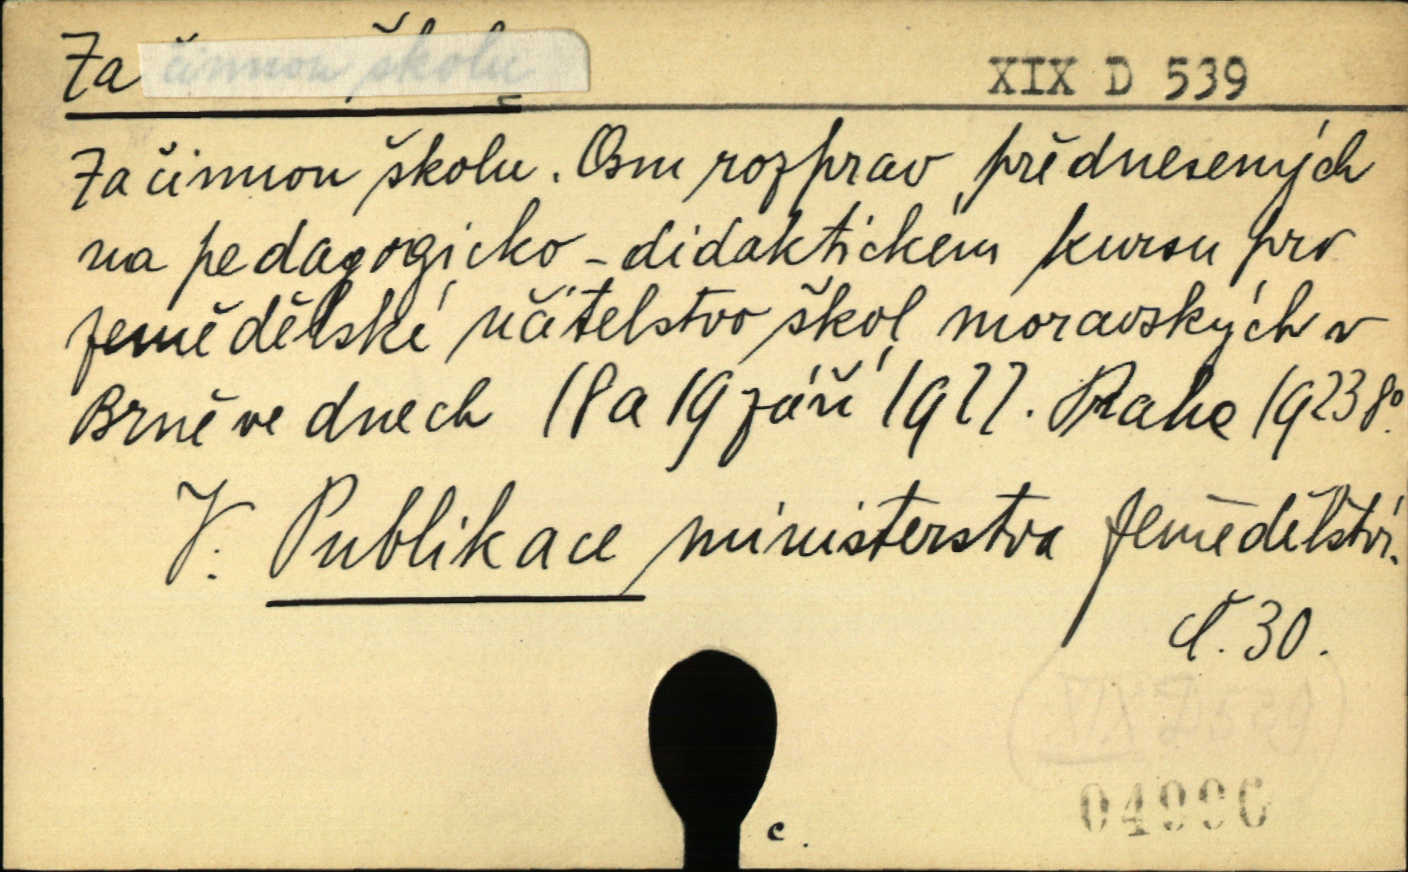 Za činnou školu XIX D 539
Za činnou školu. Osm rozprav přednesených
na pedagogicko-didaktickém kursu pro
zemědělské učitelstvo škol moravských v
Brně ve dnech 18 a 19 září 1922. Praha 1923 8°.
V. Publikace ministerstva zemědělství.
č. 30.
XIX D 539
04990
c.